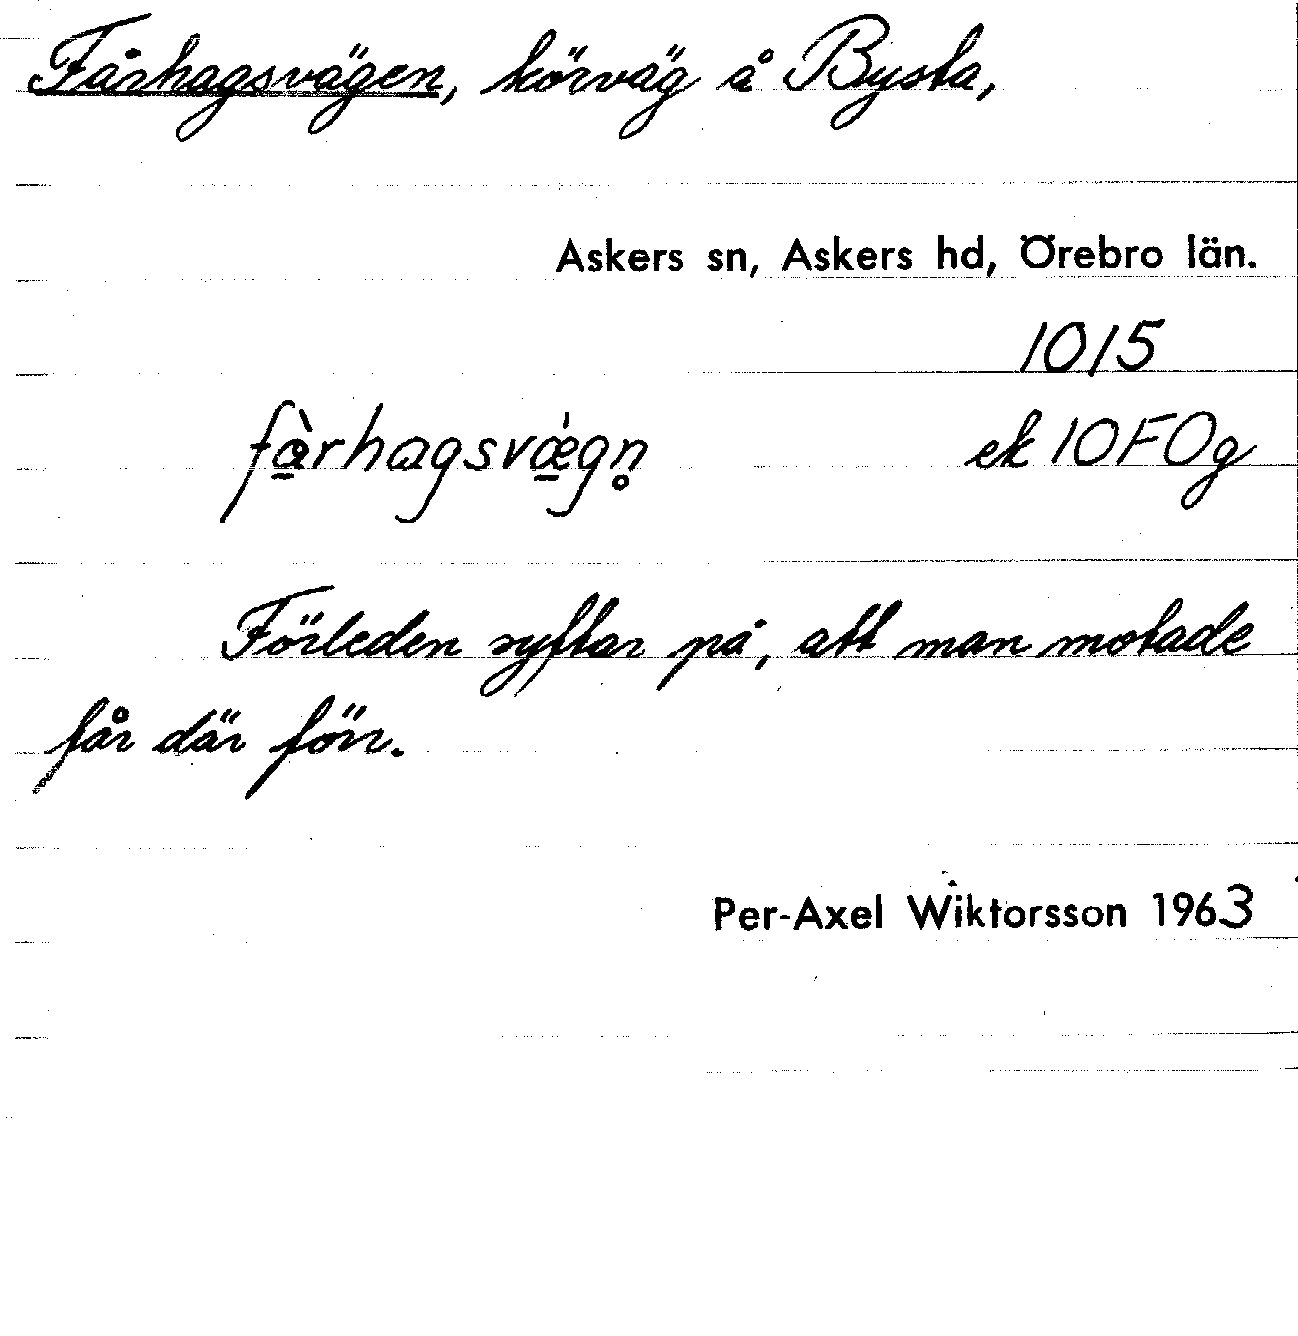 Fårhagsvägen, körväg å Bysta,
Askers sn, Askers hd, Örebro län.
10/5
fàrhagsvǽgn̥
ek 10F0g
Förleden syftar på, att man motade
får där förr.
Per-Axel Wiktorsson 1963